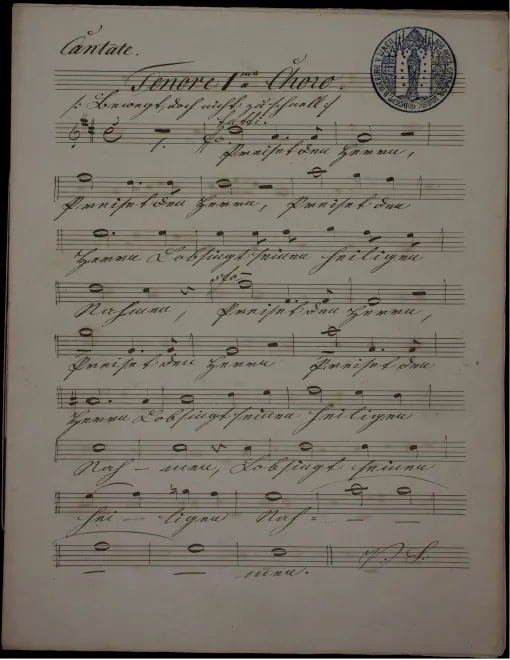 Cantate.
Tenore 1mo Choro.
/: Bewegt, doch nicht zu schnell :/
tutti.
Preiset den Herrn,
Preiset den Herrn, Preiset den
Herrn Lobsingt seinen heiligen
Nahmen, Preiset den Herrn,
Preiset den Herrn Preiset den
Herrn Lobsingt seinen heiligen
Nah - men, Lobsingt seinen
hei - ligen Nah = — —
— — men.